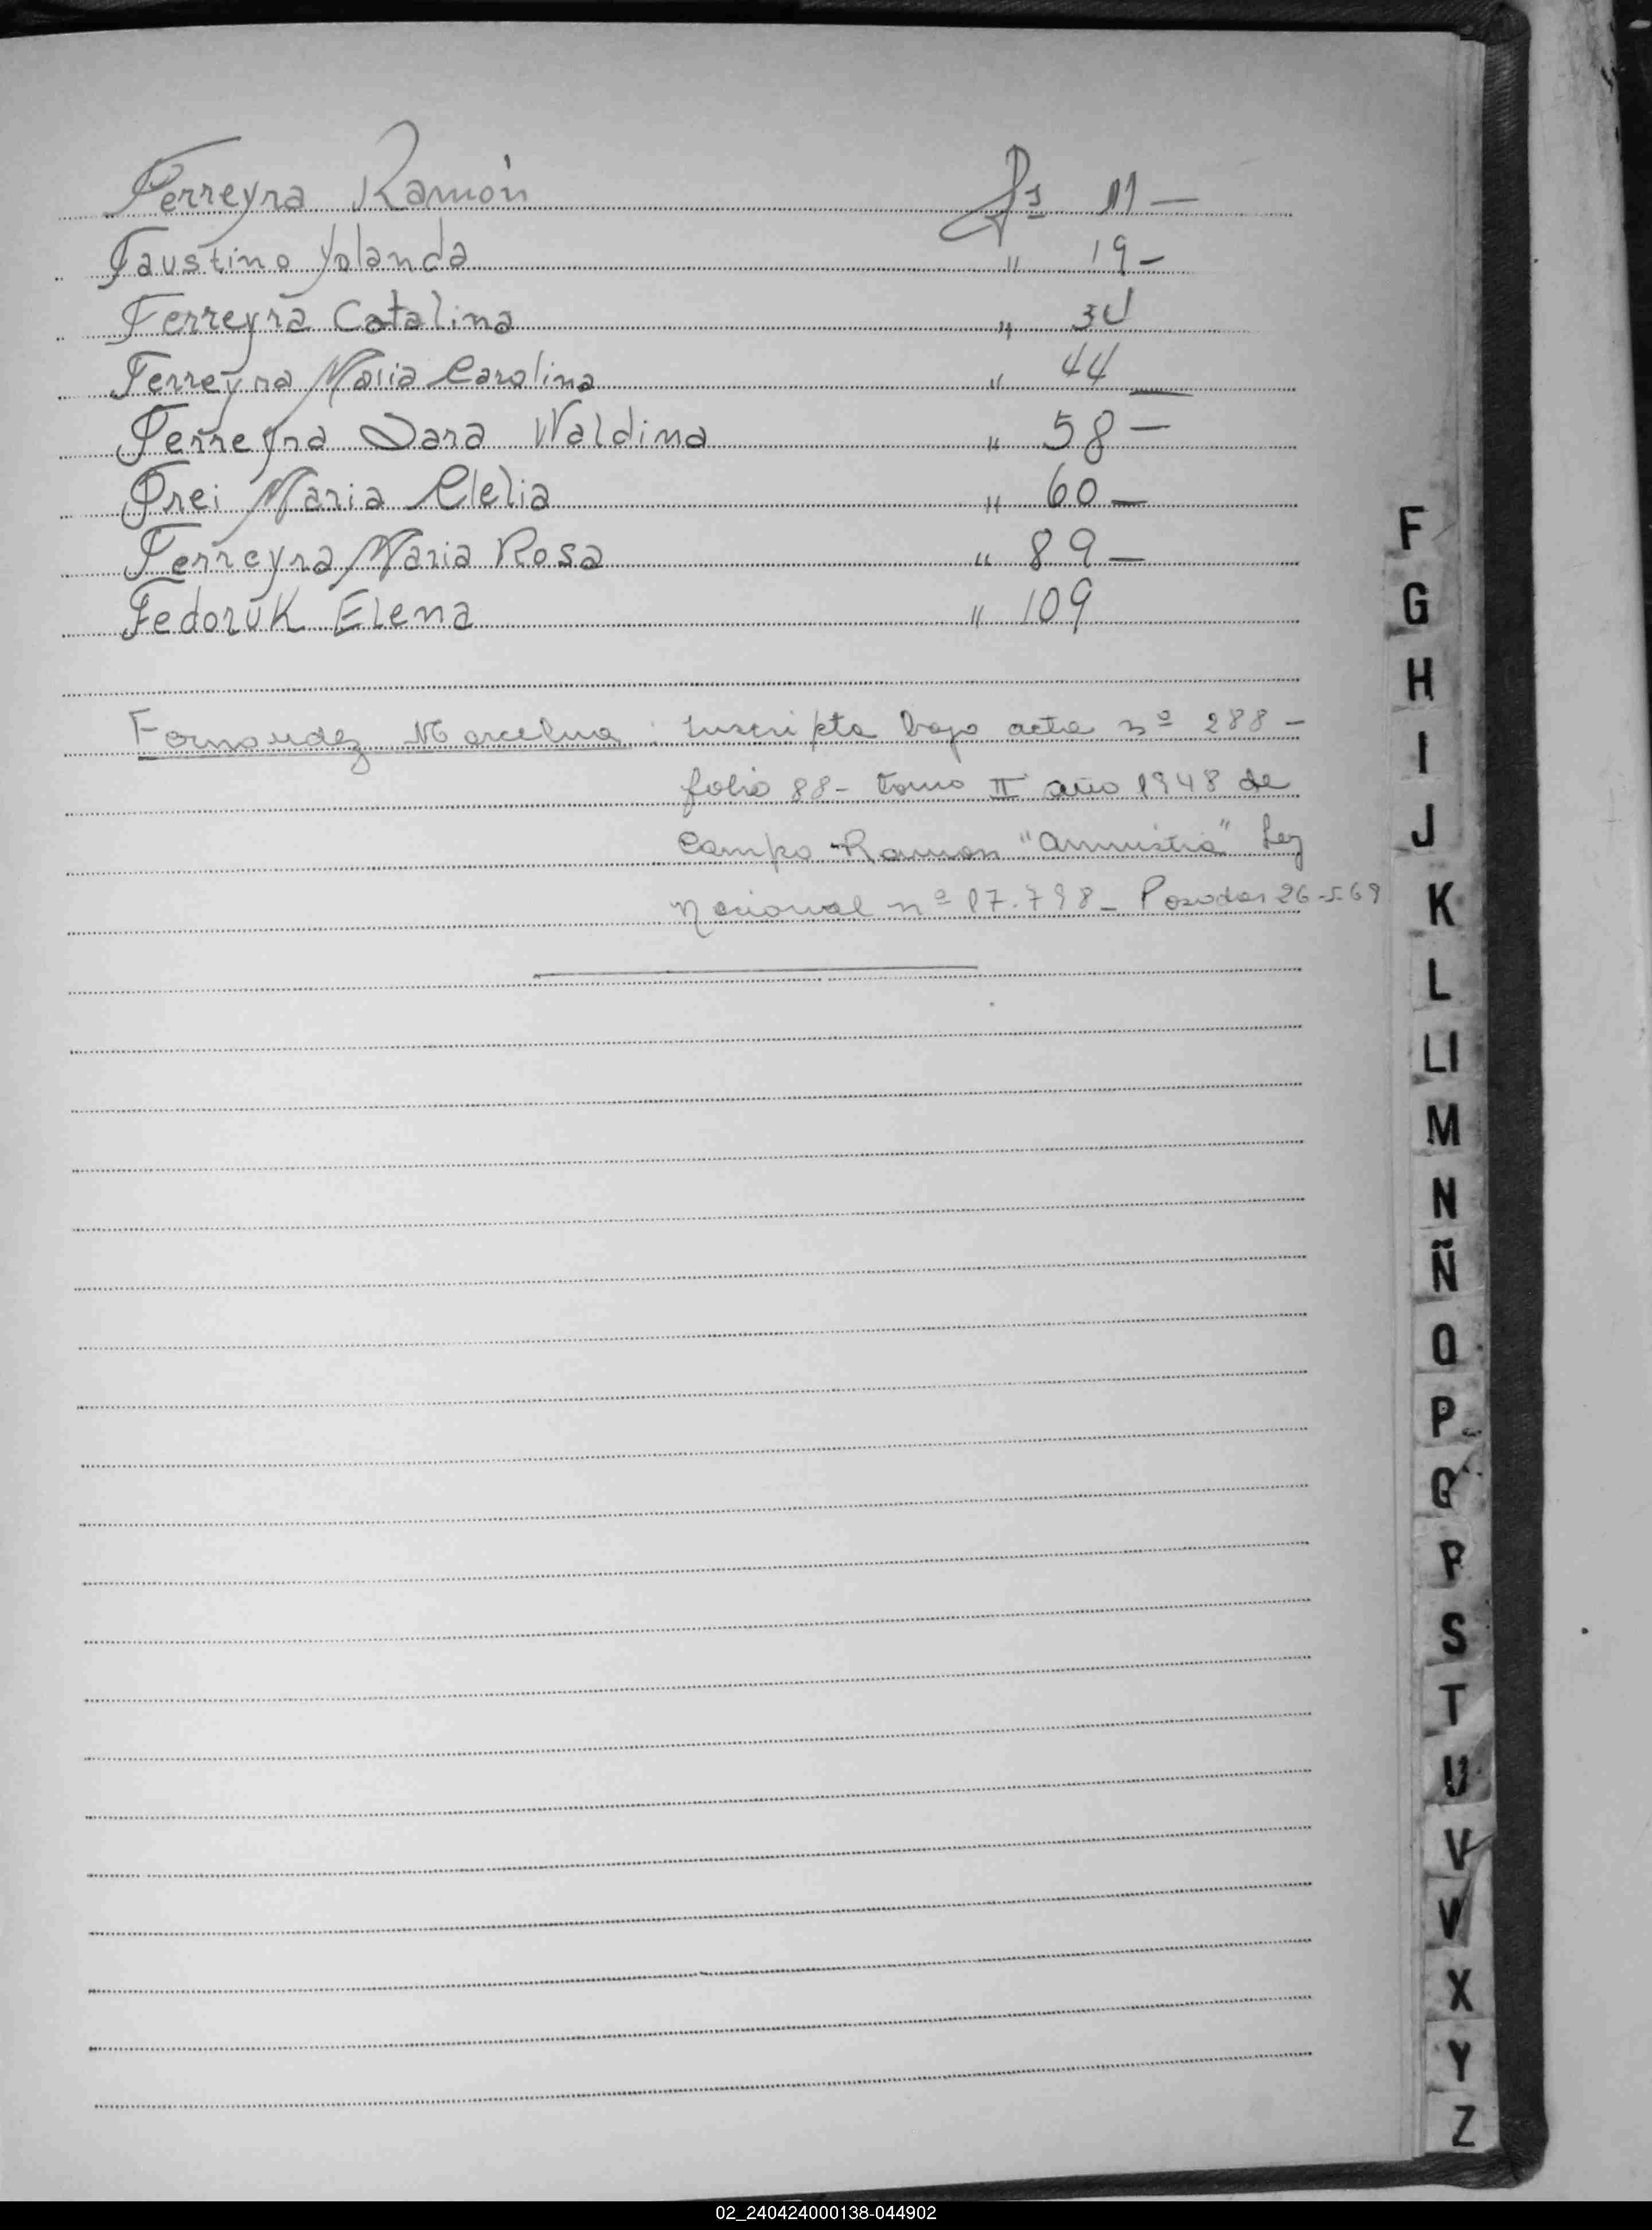 Ferreyra Ramón Fs 11 —
Faustino Yolanda " 19 –
Ferreyra Catalina "
Ferreyra Maria Carolina " 44 —
Ferreyra Sara Waldina " 58 —
Frei Maria Clelia " 60 —
Ferreyra Maria Rosa " 89 —
Fedoruk Elena " 109
Fernandez Marcelina : Inscripta bajo acta nº 288 –
folio 88 – tomo II año 1948 de
Campo Ramon "Amnistia" Ley
Nacional nº 17.798 – Posadas 26-5-69
F
G
H
I
J
K
L
Ll
M
N
Ñ
O
P
Q
R
S
T
U
V
X
Y
Z
02_240424000138-044902